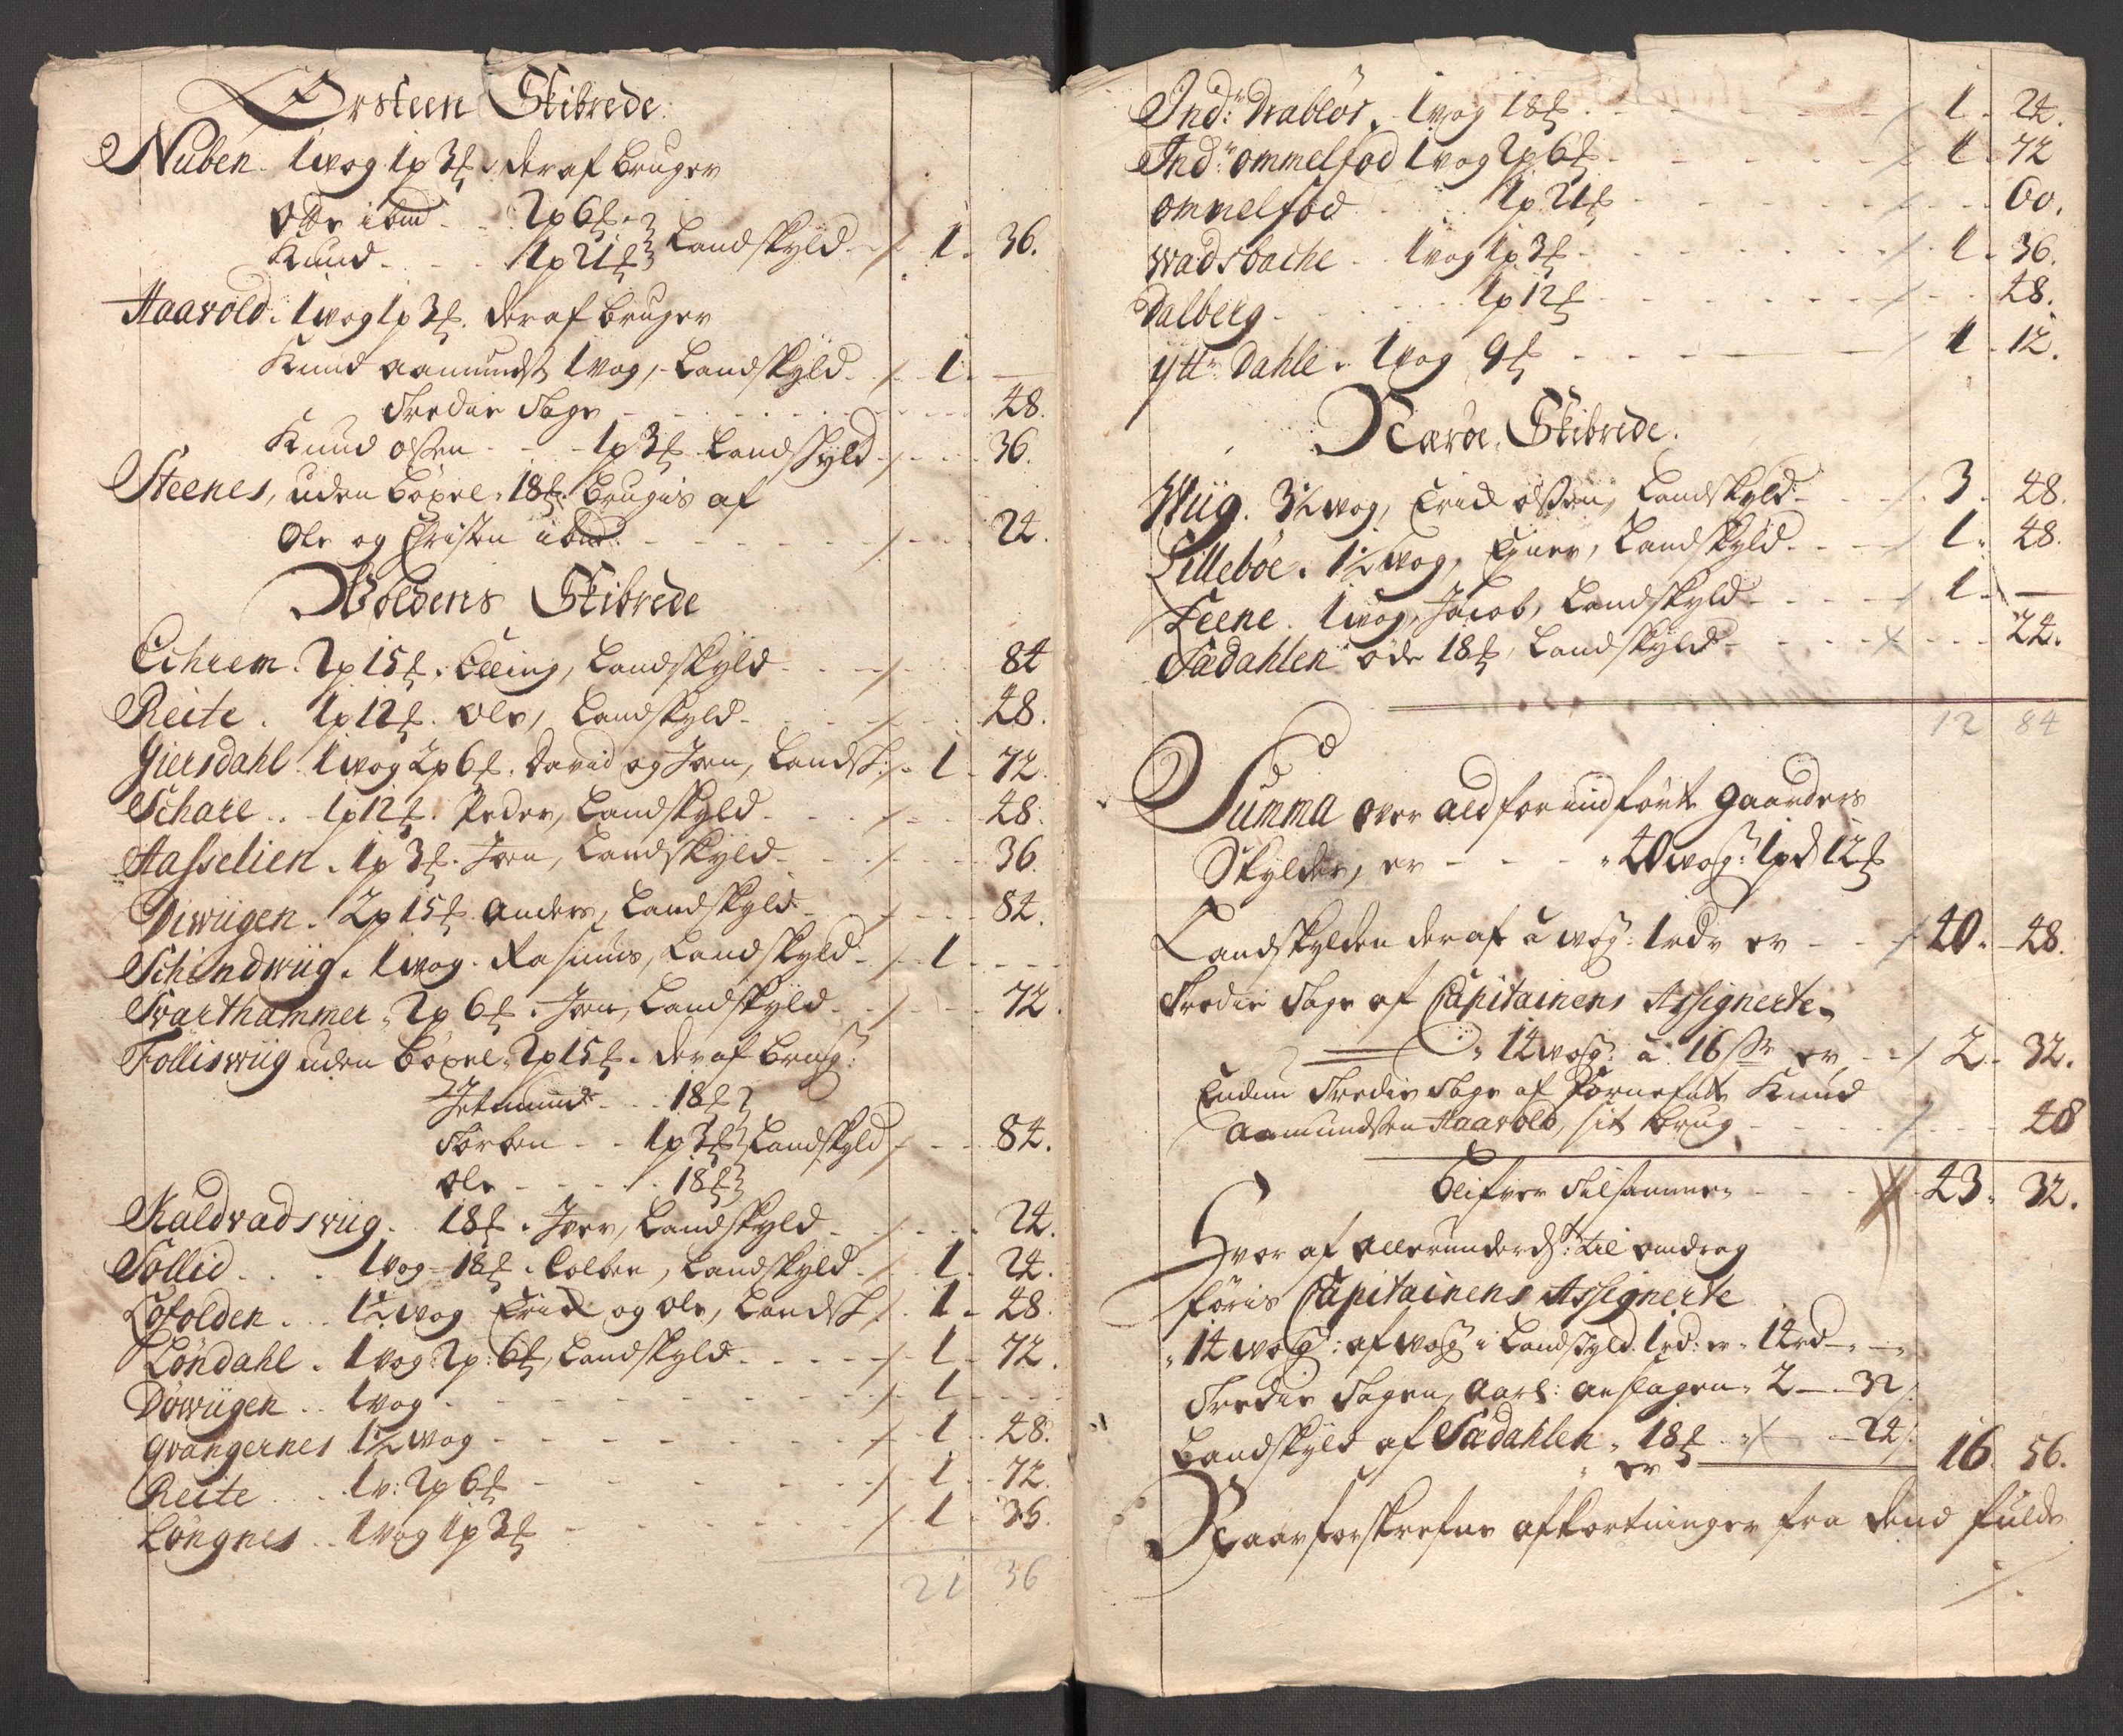 Ørsteen Skibrede.
Nuben. 1 wog 1 p 3 ℔. deraf bruger
Otte ibm . . 2 p 6 ℔.
Knud . . . 1 p 21 ℔ Landskyld . . 1. 36.
Haavold. 1 wog 1 p 3 ℔. deraf bruger
Knud Aamundß. 1 wog, Landskyld . 1. —
Tredie Tage . . . 48.
Knud Oßen . . 1 p 3 ℔ Landskyld . . 36.
Steenes, uden böxel. 18 ℔. brugis af
Ole og Christen ibm . . . 24.
Woldens Skibrede
Echrem. 2 p 15 ℔. Elling, Landskyld . . . 84
Reite. 1 p 12 ℔. Ole, Landskyld . . . 48.
Giersdahl 1 wog 2 p 6 ℔. David og Iven, Landsk: . 1. 72.
Schare . . 1 p 12 ℔. Peder, Landskyld . . . 48.
Hasselien. 1 p 3 ℔. Iven, Landskyld . . . 36.
Diwiigen. 2 p 15 ℔. Anders, Landskyld . . . 84.
Schindwiig. 1 wog. Rasmus, Landskyld . 1. . .
Svarthammer. 2 p 6 ℔. Iven, Landskyld . . . 72.
Folliswiig uden böxel. 2 p 15 ℔. deraf brug:
Jetmund . . 18 ℔
Torben . . 1 p 3 ℔ Landskyld . . 84.
Ole . . . . 18 ℔
Kaldvadswiig. 18 ℔. Iver, Landskyld . . . 24.
Sollid . . . 1 wog 18 ℔. Colben, Landskyld . 1. 24.
Löfolden. . . 1½ wog Erich og Ole, Landsk: 1. 48.
Löndahl. 1 wog: 2 p: 6 ℔, Landskyld . . . 1. 72.
Döwiigen . . 1 wog . . . . 1. . .
Qvangernes 1½ wog . . . . 1. 48.
Reite . . 1 w: 2 p 6 ℔ . . . . 1. 72.
Löngnes . . 1 wog 1 p 3 ℔ . . . . 1. 36.
21 36
Indr: Drabløs. 1 wog 18 ℔ . . . 1. 24.
Indr: ommelfod 1 wog 2 p 6 ℔ . . . 1. 72
ommelfod . . . 1 p 21 ℔ . . . 60.
Wadsbache . . 1 wog 1 p 3 ℔ . . . 1. 36.
Dalberg . . . . 1 p 12 ℔ . . . 48.
ytt: Dahle. 1 wog 9 ℔ . . . 1. 12.
Harøe Skibrede.
Wiig. 3½ wog, Erich Oßen, Landskyld . . 3. 48.
Lillebøe. 1½ wog, Einer, Landskyld . . 1. 48.
Leene. 1 wog, Jacob, Landskyld . . . 1. —
Sædahlen öde 18 ℔, Landskyld . . . 24.
12 84
Summa over ald forindførte gaarders
Skylder, er . . . 40 wog: 1 pd 12 ℔
Landskylden deraf à wog: 1 rdr er . . 40. 48.
Tredie Tage af Capitainens Assignerte
14 wog: à 16 ß er . . 2. 32.
Endnu Tredie Tage af fornefnte Knud
Aamundßen Haavold, sit brug . . . 48
Blifver tilsammen . . . 43. 32.
Hvor af allerunderd: til omdrag
føris Capitainens Assignerte
14 wog: af wog i Landskyld 1 rd: er. 14 rd . —
Tredie Tagen, Aarl: anslagen. 2 — 32
Landskyld af Sædahlen. 18 ℔ . . — 24.
er 16. 56.
Naar forskrefne afkortninger fra dend fulde